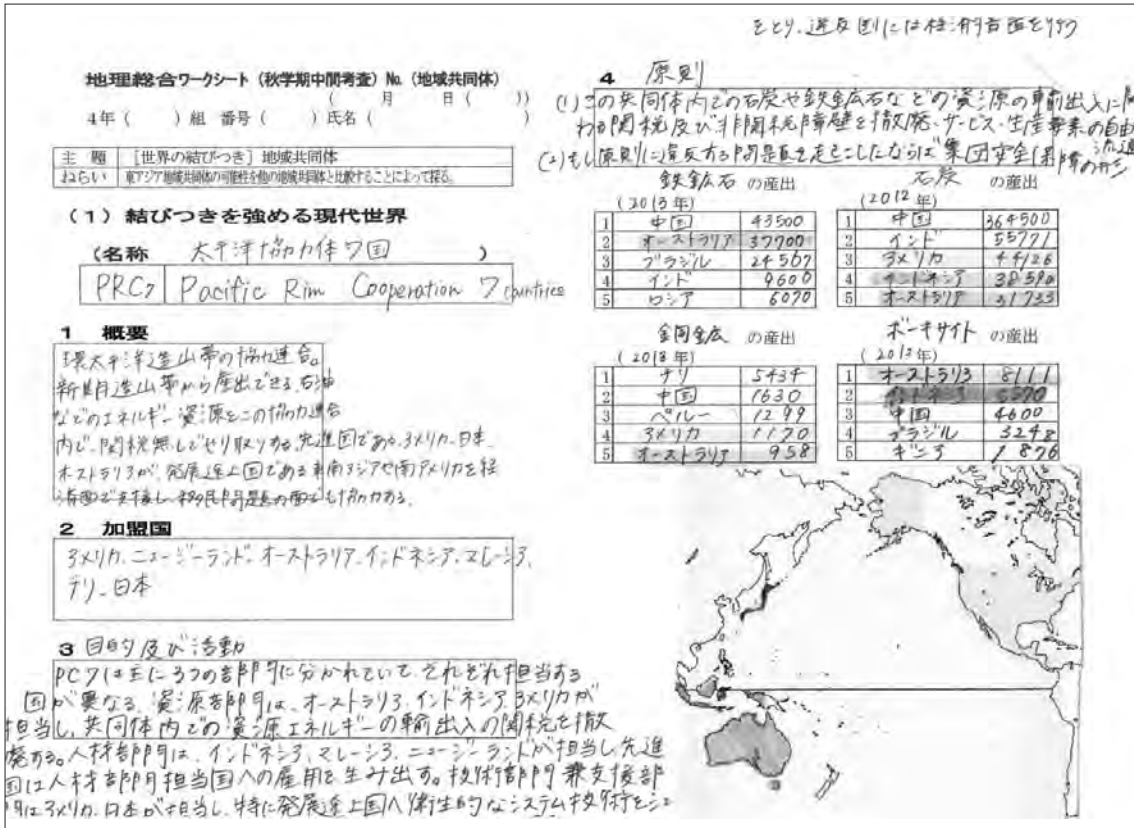 地理総合ワークシート（秋学期中間考査）No.（地域共同体）
（　月　日（　））
4年（　）組 番号（　）氏名（　）
主 題 ［世界の結びつき］地域共同体
ねらい 東アジア地域共同体の可能性を他の地域共同体と比較することによって探る。
（１）結びつきを強める現代世界
（名称 太平洋協力体7国）
PRC7 Pacific Rim Cooperation 7 countries
1 概要
環太平洋造山帯の協力連合。
新期造山帯から産出できる、石油
などのエネルギー資源をこの協力連合
内で、関税無しでやり取りする。先進国であるアメリカ、日本、
オストラリアが、発展途上国である東南アジアや南アメリカを経
済面で支援し、移民問題の面でも協力する。
2 加盟国
アメリカ、ニュージーランド、オーストラリア、インドネシア、マレーシア、
チリ、日本
3 目的及び活動
PC7は主に3つの部門に分かれていて、それぞれ担当する
国が異なる。資源部門は、オーストラリア、インドネシア、アメリカが
担当し、共同体内での資源エネルギーの輸出入の関税を撤
廃する。人材部門は、インドネシア、マレーシア、ニュージーランドが担当し、先進
国は人材部門担当国への雇用を生み出す。技術部門兼支援部
門はアメリカ、日本が担当し、特に発展途上国へ衛生的なシステム技術を
をとり、違反国には経済
4 原則
(1) この共同体内での石炭や鉄鉱石などの資源の輸出入に関
わる関税及び非関税障壁を撤廃、サービス・生産要素の自由
流通
(2) もし原則に違反する問題を起こしたならば集団安全保障の形
鉄鉱石 の産出
(2013年)
1 中国 43500
2 オーストラリア 37700
3 ブラジル 24567
4 インド 9600
5 ロシア 6070
石炭 の産出
(2012年)
1 中国 364500
2 インド 55771
3 アメリカ 44126
4 インドネシア 38590
5 オーストラリア 31733
銅鉱 の産出
(2013年)
1 チリ 5434
2 中国 1630
3 ペルー 1299
4 アメリカ 1170
5 オーストラリア 958
ボーキサイト の産出
(2013年)
1 オーストラリア 8111
2 インドネシア 5570
3 中国 4600
4 ブラジル 3248
5 ギニア 1876